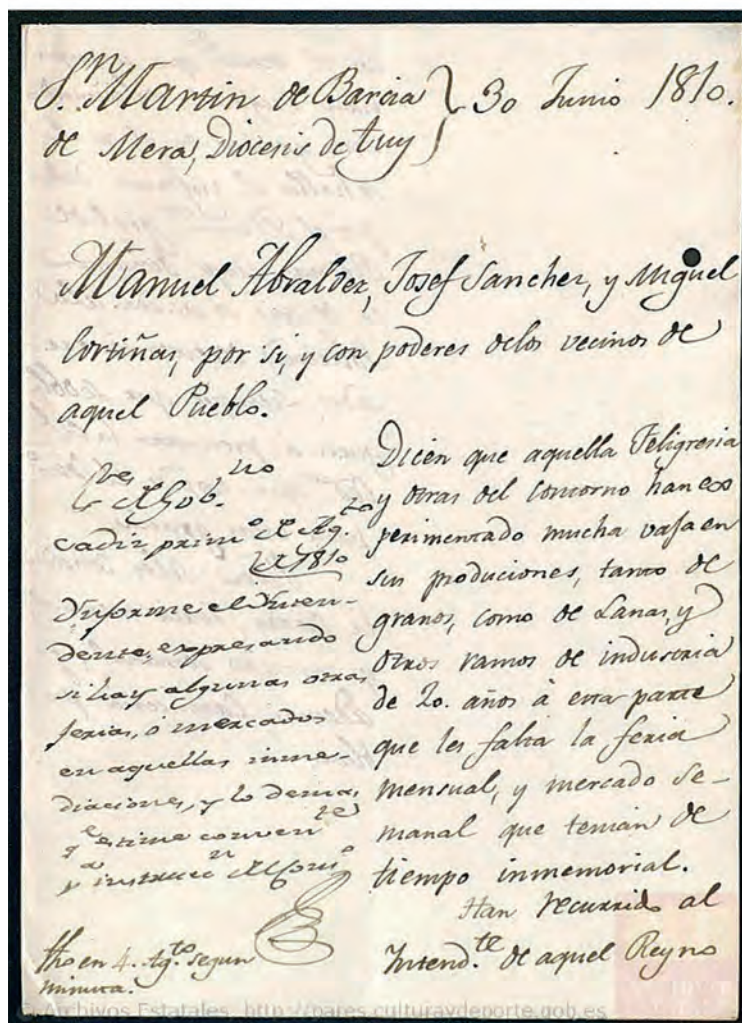 Sn. Martin de Barcia } 30 Junio 1810.
de Mera, Diocesis de Tuy
Manuel Abraldez, Josef Sanchez, y Miguel
Cortiñas, por si, y con poderes delos vecinos de
aquel Pueblo.
no
Cadiz, prim.o de Ag.to
de 1810
Informe el Inten-
dente, expresando
si hay algunas otras
ferias, ó mercados
en aquellas inme-
diaciones, y lo demas
q.e estime conven.te
p.a instrucc.n del Cons.o
fho en 4. Ag.to segun
minuta.
Dicen que aquella Feligresia
y otras del contorno han ex
perimentado mucha vaja en
sus produciones, tanto de
granos, como de Lanas, y
otros ramos de industria
de 20. años à esta parte
que les falta la feria
mensual, y mercado se-
manal que tenian de
tiempo inmemorial.
Han recurrido al
Intend.te de aquel Reyno
© Archivos Estatales, http://pares.culturaydeporte.gob.es